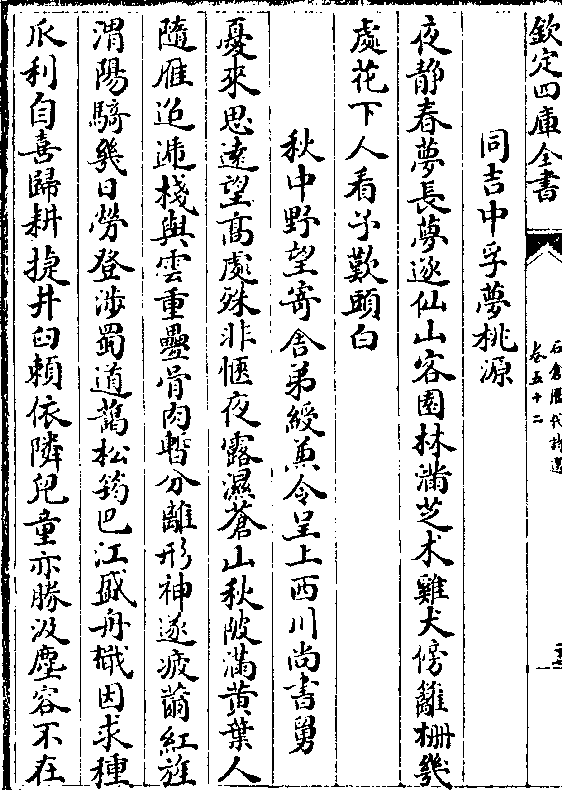 欽定四庫全書
石倉歷代詩選
卷五十二
同吉中孚夢桃源
夜静春夢長夢逐仙山客園林滿芝术雞犬傍籬栅幾
處花下人看予歎頭白
秋中野望寄舍弟綬兼令呈上西川尚書舅
憂來思遠望高處殊非愜夜露濕蒼山秋陂滿黄葉人
隨雁迢遞棧與雲重疊骨肉暫分離形神遂疲薾紅旌
渭陽騎幾日勞登涉蜀道藹松筠巴江盛舟檝因求種
瓜利自喜歸耕捷井臼賴依隣兒童亦勝汲塵容不在